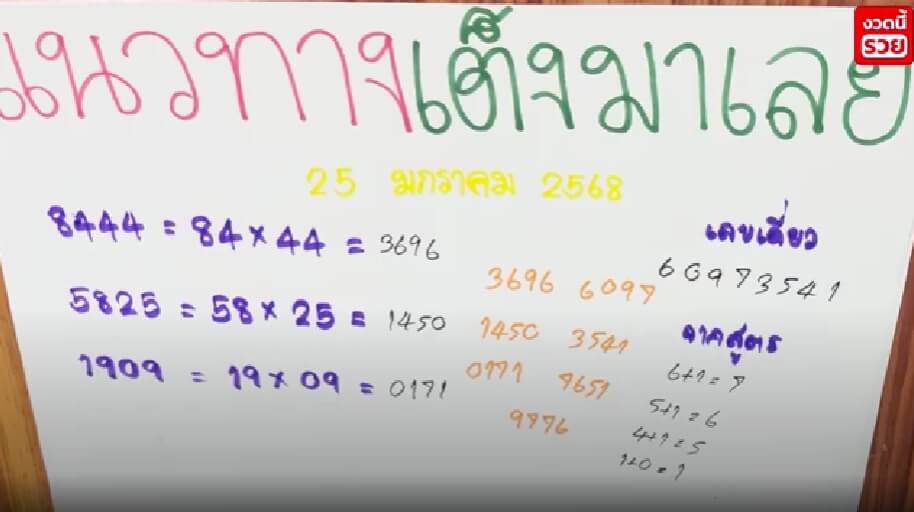 งวดนี้
รวย
แนวทางเต็งมาเลย
25 มกราคม 2568
8444 = 84×44 = 3696
5825 = 58×25 = 1450
1909 = 19×09 = 0171
3696 6097
1450 3541
0171 7651
9776
เลขเดี่ยว
60973541
จากสูตร
6+1=7
5+1=6
4+1=5
1+0=1